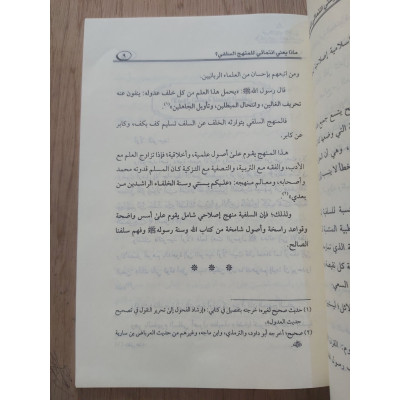 ماذا يعني انتمائي للمنهج السلفي؟
٩
ومن اتبعهم بإحسان من العلماء الربانيين.
قال رسول الله ﷺ: «يحمل هذا العلم من كل خلف عدوله: ينفون عنه
تحريف الغالين، وانتحال المبطلين، وتأويل الجاهلين»(١).
فالمنهج السلفي يتوارثه الخلف عن السلف تسليم كف بكف؛ وكابر
عن كابر.
هذا المنهج يقوم على أصول علمية، وأخلاقية؛ فإذا تزاوج العلم مع
الأدب، والفقه مع التربية، والتصفية مع التزكية كان المسلم قدوته محمد
وأصحابه، ومعالم منهجه: «عليكم بسنتي وسنة الخلفاء الراشدين من
بعدي»(٢).
ولذلك؛ فإن السلفية منهج إصلاحي شامل يقوم على أسس واضحة
وقواعد راسخة وأصول شامخة من كتاب الله وسنة رسوله ﷺ وفهم سلفنا
الصالح.
* * *
(١) حديث صحيح لغيره؛ خرجته بالتفصيل في كتابي: «إرشاد الفحول إلى تحرير النقول في تصحيح
حديث العدول».
(٢) صحيح؛ أخرجه أبو داود، والترمذي، وابن ماجه، وغيرهم من حديث العرباض بن سارية